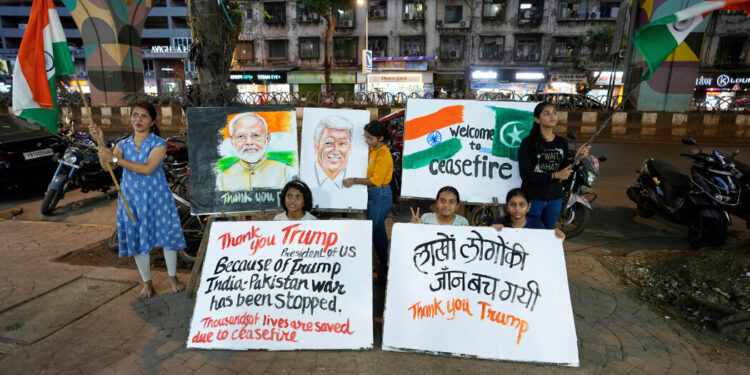 Thank you
Welcome
to
Ceasefire
Thank you Trump
President of US
Because of Trump
India-Pakistan war
has been stopped.
Thousands of lives are saved
due to ceasefire
लाखो लोगोंकी
जॉन बच गयी
Thank you Trump